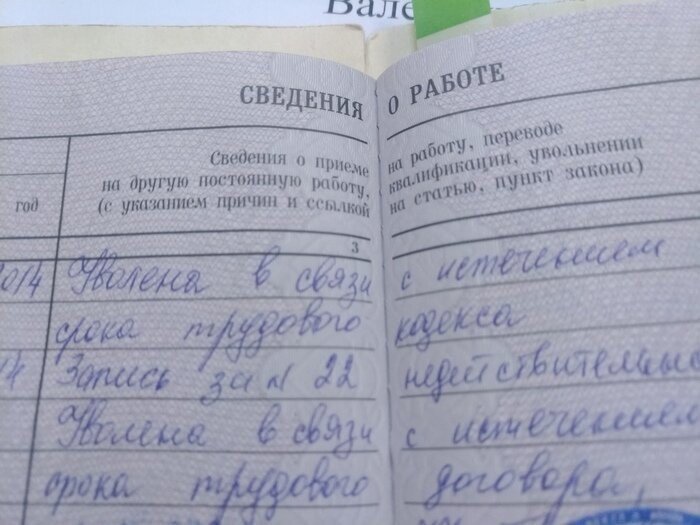 Вале
СВЕДЕНИЯ О РАБОТЕ
Сведения о приеме на работу, переводе
на другую постоянную работу, квалификации, увольнении
год (с указанием причин и ссылкой на статью, пункт закона)
3
2014 Уволена в связи с истечением
срока трудового кодекса
14 Запись за № 22 недействительна
Уволена в связи с истечением
срока трудового договора,